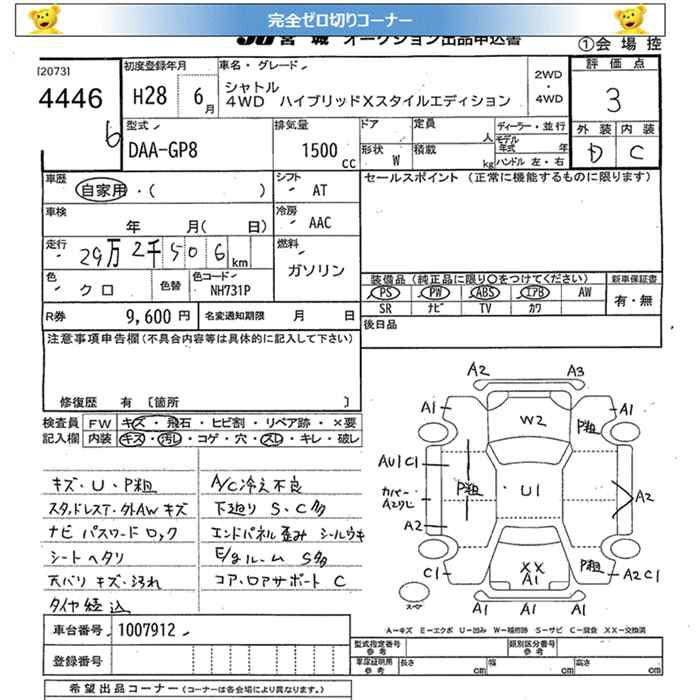 完全ゼロ切りコーナー
JU 宮城 オークション出品申込書
①会場控
[2073]
4446
6
初度登録年月
H28 6月
車名・グレード
シャトル
4WD ハイブリッドXスタイルエディション
2WD
・
4WD
評価点
3
外装 内装
D C
型式
DAA-GP8
排気量
1500 cc
ドア
形状 W
定員 人
積載 kg
ディーラー・並行
モデル年式 年
ハンドル 左・右
車歴
自家用・( )
シフト
AT
セールスポイント (正常に機能するものに限ります)
車検
年 月( 日)
冷房
AAC
走行
29万2千506km
燃料
ガソリン
色
クロ
色替
色コード
NH731P
装備品 (純正品に限り○をつけてください)
新車保証書
PS PW ABS エアB AW
有・無
SR ナビ TV カワ
R券
9,600円
名変通知期限 月 日
後日品
注意事項申告欄(不具合内容等は具体的に記入して下さい)
修復歴 有 〔箇所 〕
検査員
記入欄
FW キズ・飛石・ヒビ割・リペア跡・×要
内装 キズ・汚れ・コゲ・穴・スレ・キレ・破レ
キズ・U・P粗
スタッドレスT・外AWキズ
ナビ パスワード ロック
シート ヘタリ
天バリ キズ・汚れ
タイヤ積込
A/C冷え不良
下廻り S・C多
エンドパネル歪み シールウキ
E/gルーム S多
コア・ロアサポート C
A2
A3
A1
W2
P粗
A1
AU1 C1
P粗
U1
カバー
A2
A2
C1
XX
A1
P粗
A2 C1
スペア
A1
A1
A1
A-キズ E-エクボ U-凹み W-補修跡 S-サビ C-腐食 XX-交換済
車台番号
1007912
登録番号
型式指定番号
参考
類別区分番号
参考
車庫証明用
参考
長さ cm
幅 cm
高さ cm
希望出品コーナー (コーナーは各会場により異なります。)